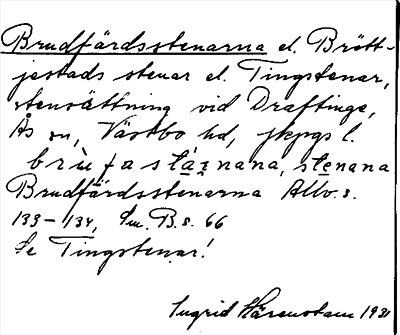 Brudfärdsstenarna el. Brött-
jestads stenar el. Tingstenar,
stensättning vid Draftinge,
Ås sn, Västbo hd, jkpgs l.
brùfastáznana, stenana
Brudfärdsstenarna Allv. s.
133-134, Sm. B. s. 66
Se Tingstenar!
Ingrid 193